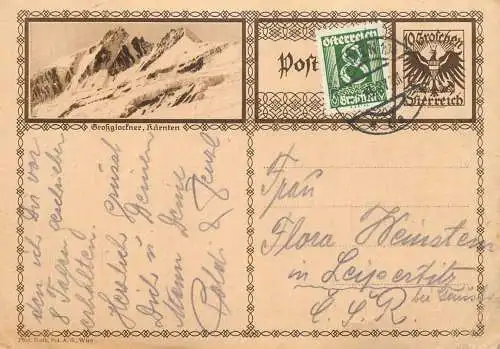 Großglockner, Kärnten
Post
Österreich
8
Groschen
10 Groschen
Österreich
den ich Dir vor
8 Tagen geschrieben
erhalten.
Herzliche Grüsse
Dich u. Deinen
Mann Deine
Poldi &
Frau
Flora Weinstein
in Leipertitz
bei
Č. S. R.